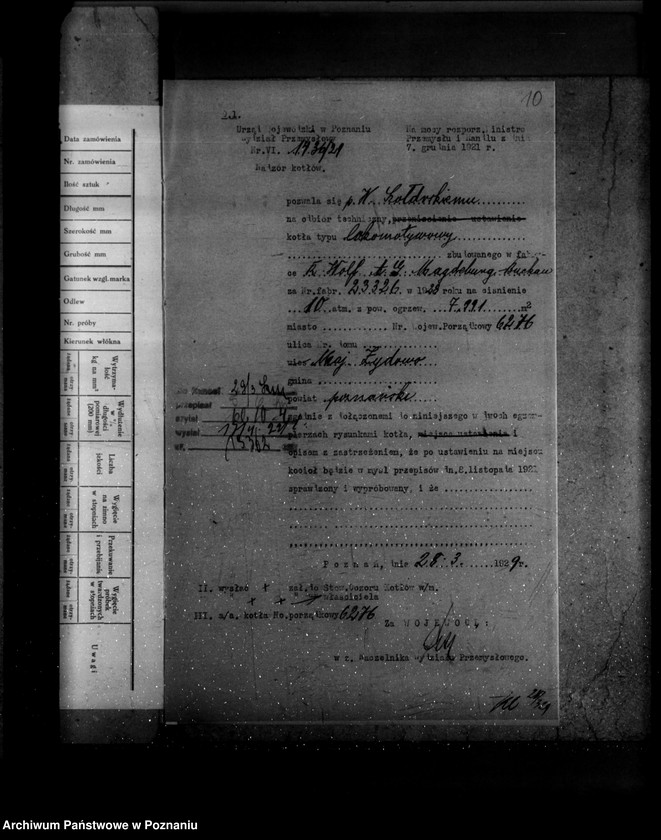 10
Data zamówienia
Nr. zamówienia
Ilość sztuk
Długość mm
Szerokość mm
Grubość mm
Gatunek wzgl. marka
Odlew
Nr. próby
Kierunek włókna
Wytrzymałość kg na mm²
żądana
otrzymana
Wydłużenie w % długości pomiarowej (200 mm)
Liczba jakości
Wygięcie na zimno w stopniach
Przekuwanie i przebijanie
Wygięcie próbek twardzonych w stopniach
Uwagi
Urząd Wojewódzki w Poznaniu
Wydział Przemysłowy
Nr.VI. 1931/21
Nadzór kotłów.
Na mocy rozporz. Ministra
Przemysłu i Handlu z dnia
7. grudnia 1921 r.
pozwala się p. W.
na odbiór techniczny, przeniesienie - ustawienie
kotła typu lokomotywowy
zbudowanego w fabry-
ce R. Wolf A. G. Magdeburg-Buckau
za Nr.fabr. 23326. w 1923 roku na ciśnienie
10 atm. z pow. ogrzew. 7.991 m²
miasto Nr. Wojew.Porządkowy 6276
ulica Nr. domu
wieś Maj. Żydowo
gmina
powiat poznański
zgodnie z dołączonemi do niniejszego w dwóch egzem-
plarzach rysunkami kotła, miejsca ustawienia i
opisem z zastrzeżeniem, że po ustawieniu na miejscu
kocioł będzie w myśl przepisów dn.8.listopada 1921
sprawdzony i wypróbowany, i że
Poznań, dnia 28. 3. 1929 r.
II. wysłać + zał. do Stow. Dozoru Kotłów w/m.
właściciela
III. a/a. kotła No.porządkowy 6276
Za WOJEWODĘ:
w z. Naczelnika Wydziału Przemysłowego.
Do Kancel. 29/3
przepisał
czytał
wysłał
Archiwum Państwowe w Poznaniu